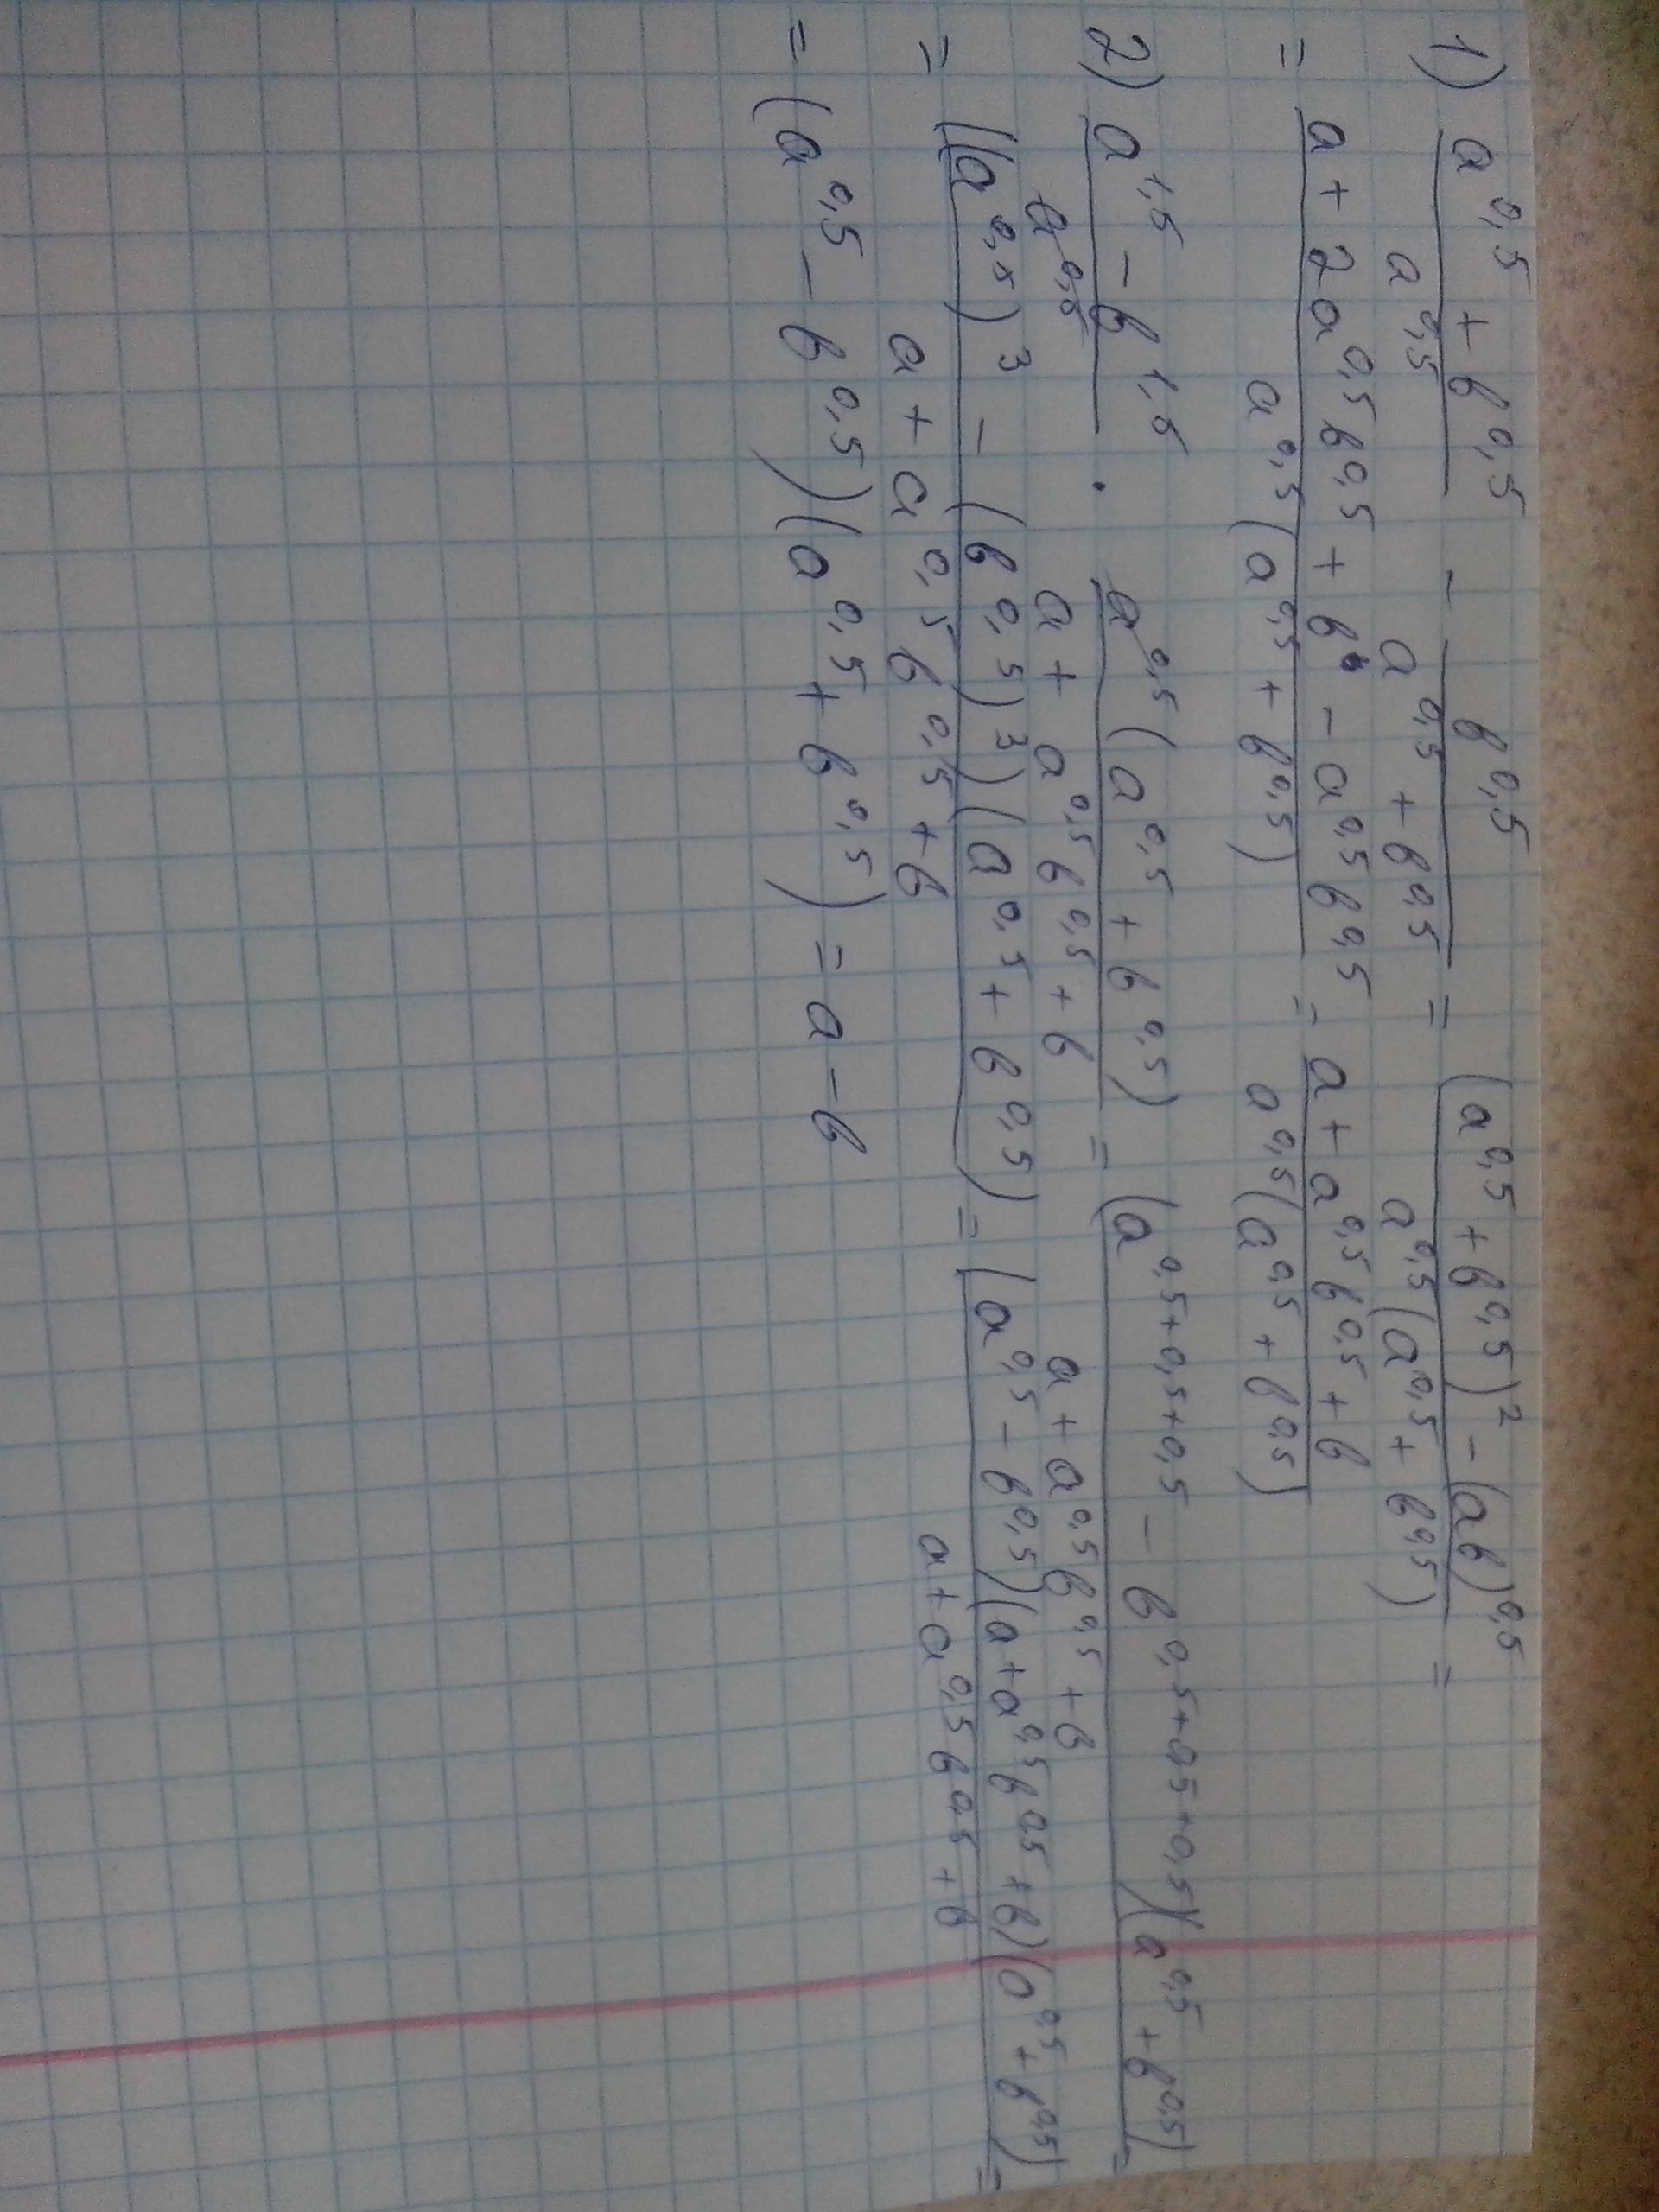 1) (a^0,5 + b^0,5)/a^0,5 - b^0,5/(a^0,5 + b^0,5) = ((a^0,5 + b^0,5)^2 - (ab)^0,5)/(a^0,5(a^0,5 + b^0,5)) =
= (a + 2a^0,5 b^0,5 + b - a^0,5 b^0,5)/(a^0,5(a^0,5 + b^0,5)) = (a + a^0,5 b^0,5 + b)/(a^0,5(a^0,5 + b^0,5))
2) (a^1,5 - b^1,5)/a^0,5 · (a^0,5(a^0,5 + b^0,5))/(a + a^0,5 b^0,5 + b) = ((a^0,5+0,5+0,5 - b^0,5+0,5+0,5)(a^0,5 + b^0,5))/(a + a^0,5 b^0,5 + b) =
= (((a^0,5)^3 - (b^0,5)^3)(a^0,5 + b^0,5))/(a + a^0,5 b^0,5 + b) = ((a^0,5 - b^0,5)(a + a^0,5 b^0,5 + b)(a^0,5 + b^0,5))/(a + a^0,5 b^0,5 + b) =
= (a^0,5 - b^0,5)(a^0,5 + b^0,5) = a - b